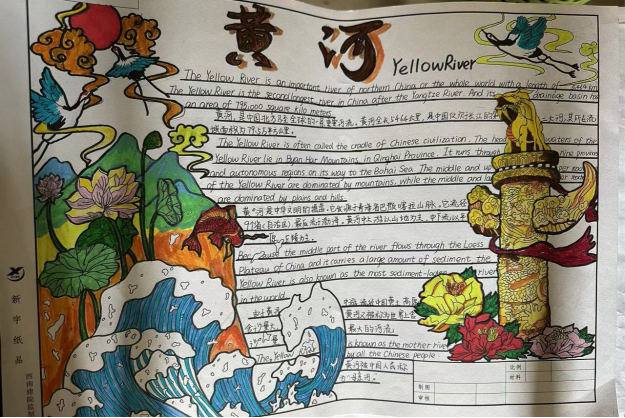 黄河
YellowRiver
The Yellow River is an important river of northern China or the whole world with a length of 5464 km
The Yellow River is the second longest river in China after the Yangtze River. And its drainage basin has
an area of 795,000 square kilo meters.
黄河,是中国北方乃至全球的一条重要河流,黄河全长5464公里,是中国仅次于长江的 二大河,其河流
域面积为79.5万平方公里。
The Yellow River is often called the cradle of Chinese civilization. The head waters of the
Yellow River lie in Bayan Har Mountains, in Qinghai Province. It runs through nine provinces
and autonomous regions on its way to the Bohai Sea. The middle and
of the Yellow River are dominated by mountains, while the middle and
are dominated by plains and hills.
黄河是中华文明的摇篮,它发源于青海省巴颜喀拉山脉,它流经
9个省(自治区)最后流入渤海。黄河中上游以山地为主,中下流以平
原、丘陵为主。
Because the middle part of the river flows through the Loess
Plateau of China and it carries a large amount of sediment, the
Yellow River is also known as the most sediment-laden river
in the world.
中段 流经中国黄土高原
由于黄河
黄河又被称为世界上含
含沙量
最大的河流
The Yellow is known as the mother river
by all the Chinese people.
黄河被中国人民称
为母亲河。
新宇纸品
比例
材料
制图
审核